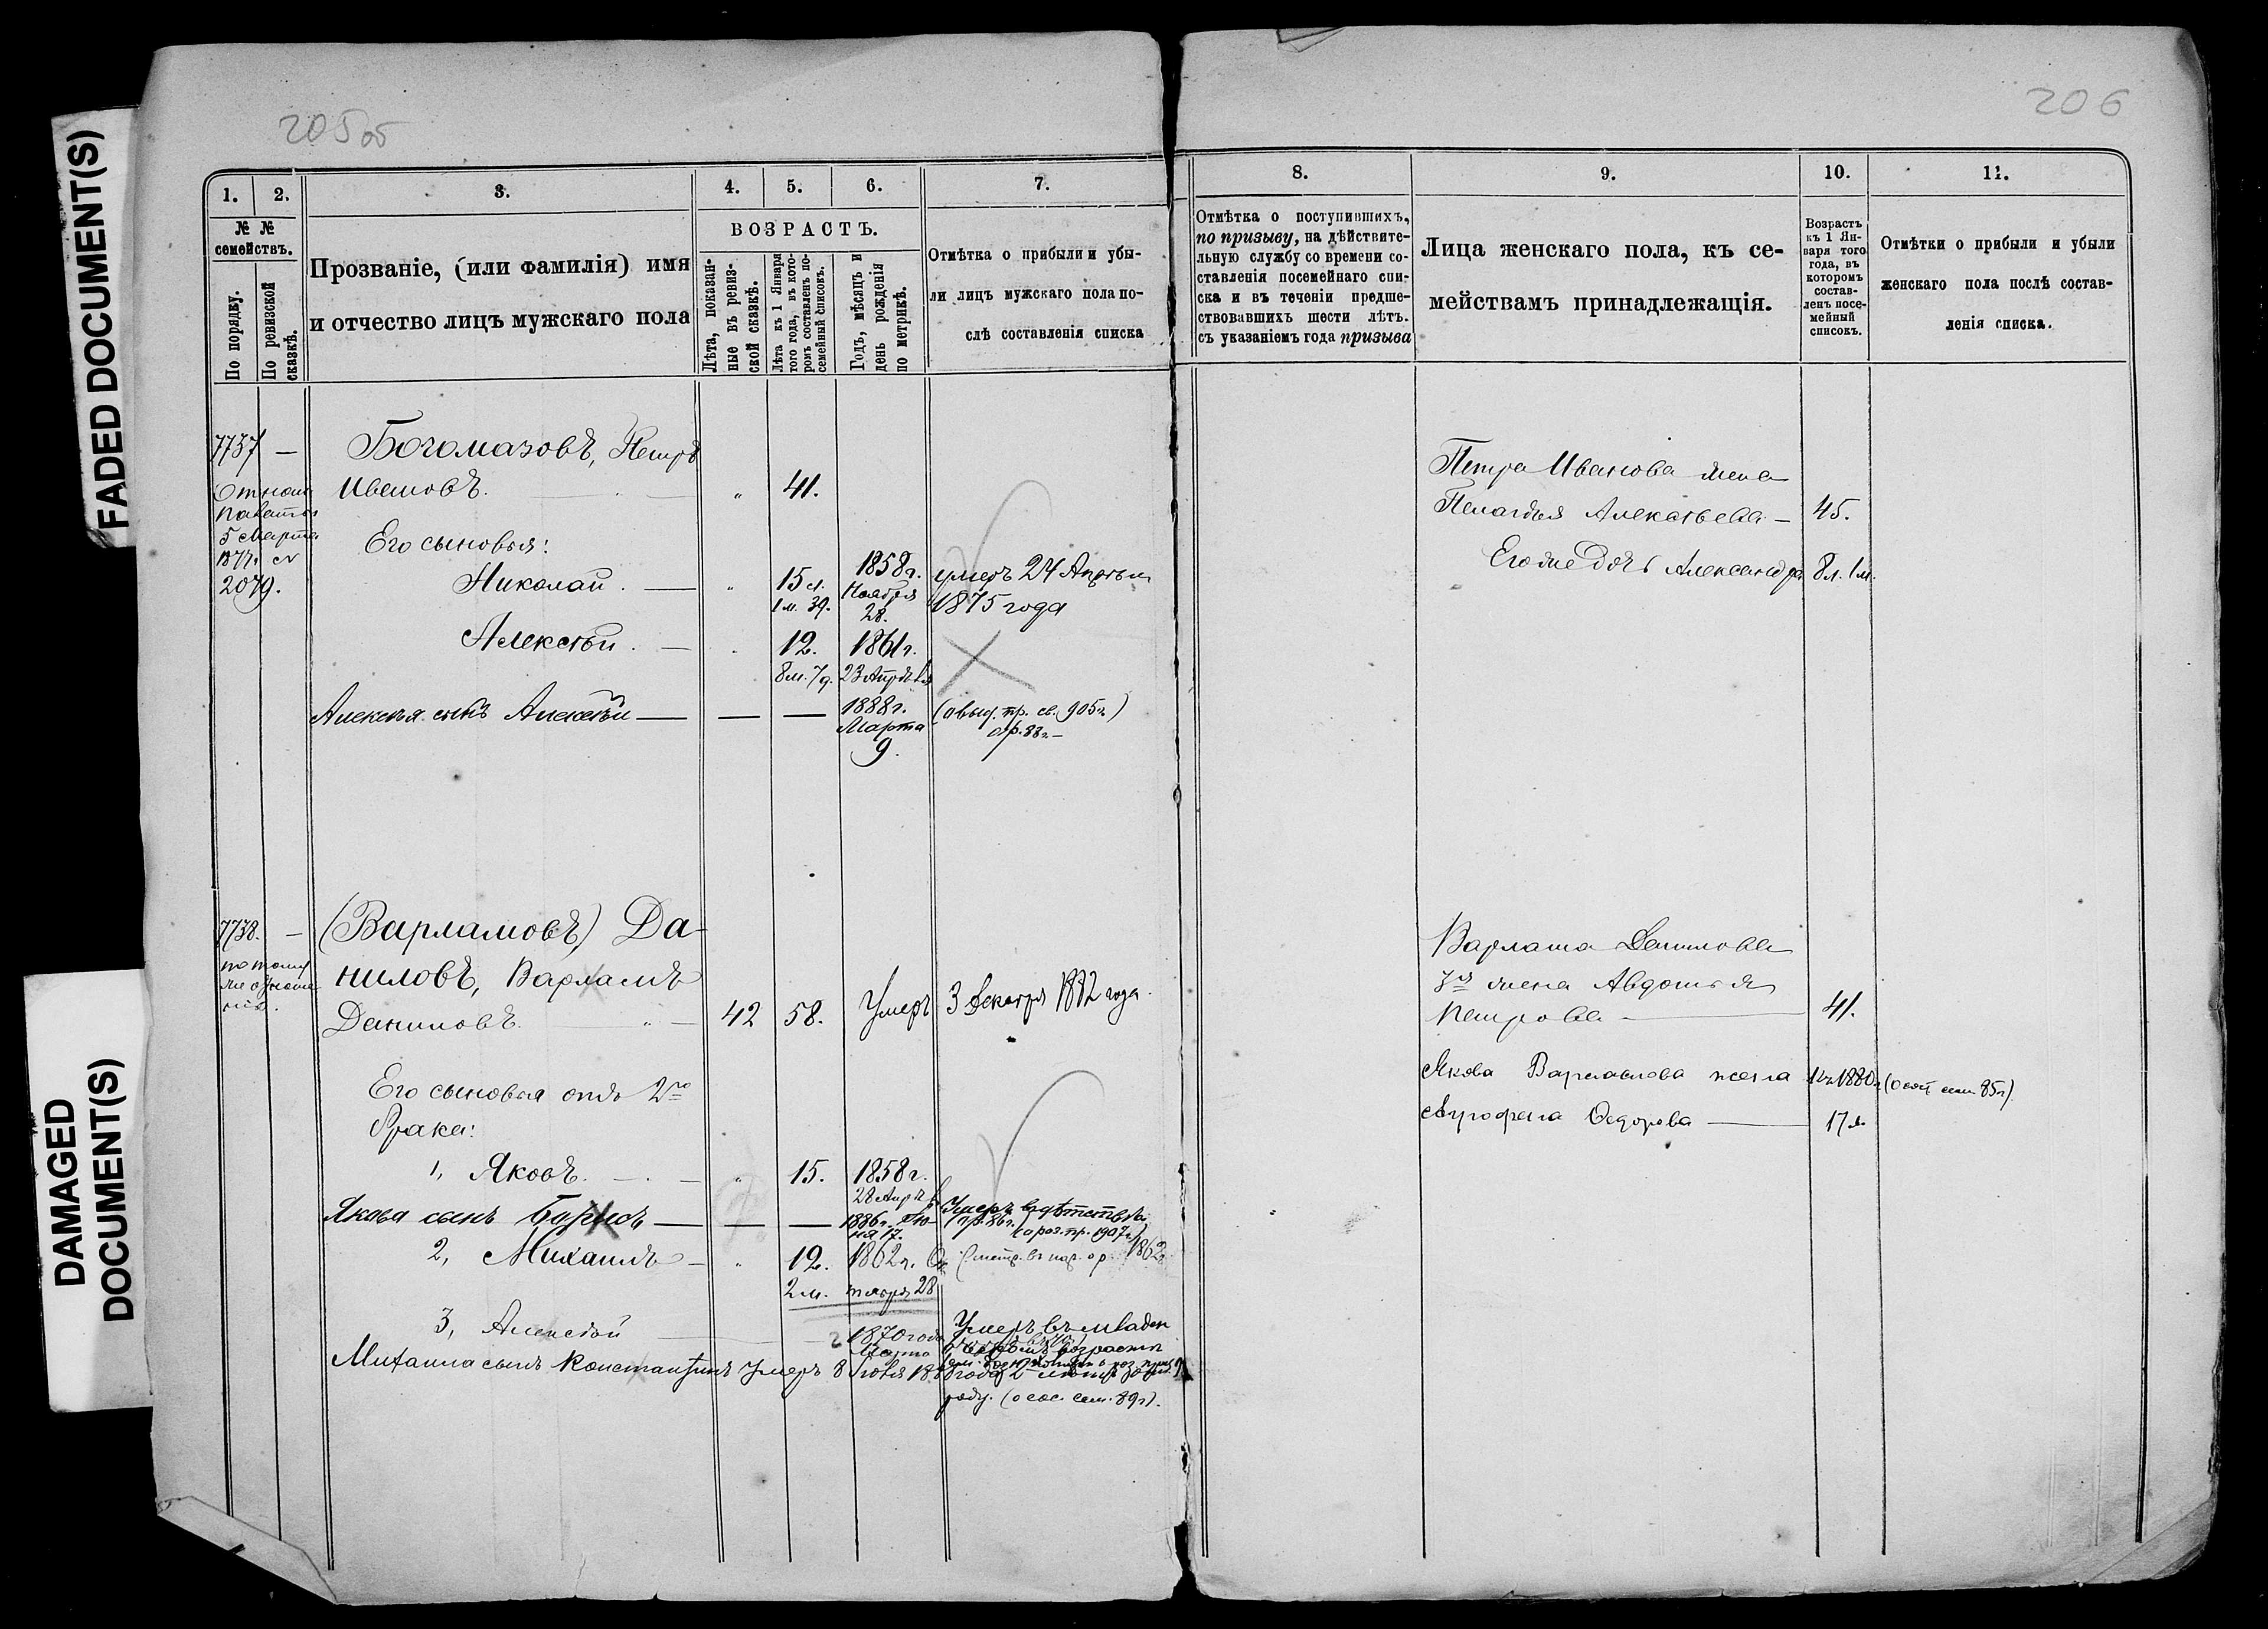 FADED DOCUMENT(S)
DAMAGED
DOCUMENT(S)
205 об
206
1.
2.
3.
4.
5.
6.
7.
№ №
семействъ.
По порядку.
По ревизской
сказкѣ.
Прозваніе, (или фамилія) имя
и отчество лицъ мужскаго пола
ВОЗРАСТЪ.
Лѣта, показан-
ные въ ревиз-
ской сказкѣ.
Лѣта къ 1 Января
того года, въ кото-
ромъ составленъ по-
семейный списокъ.
Годъ, мѣсяцъ и
день рожденія
по метрикѣ.
Отмѣтка о прибыли и убы-
ли лицъ мужскаго пола по-
слѣ составленія списка
8.
9.
10.
11.
Отмѣтка о поступившихъ,
по призыву, на дѣйствите-
льную службу со времени со-
ставленія посемейнаго спи-
ска и въ теченіи предше-
ствовавшихъ шести лѣтъ.
съ указаніемъ года призыва
Лица женскаго пола, къ се-
мействамъ принадлежащія.
Возрастъ
къ 1 Ян-
варя того
года, въ
которомъ
состав-
ленъ посе-
мейный
списокъ.
Отмѣтки о прибыли и убыли
женскаго пола послѣ состав-
ленія списка.
7737 —
Богомазовъ, Петръ
Ивановъ. — " 41.
5 Марта
2079.
Его сыновья:
Николай. — " 15 л. 1858 г. умеръ 24 Апрѣля
1 м. 3 д. Ноября 1875 года
28.
Алексѣй. — 12. 1861 г.
8 м. 7 д. 23 Апрѣля
Алексѣя сынъ Алексѣй — — — 1888 г. (о выд. пр. св. 905 г.)
Марта о р. 88 г. —
9.
Петра Иванова жена
Пелагѣя Алексѣева — 45.
Его же дочь Александра 8 л. 1 м.
7738. — (Варламовъ) Да-
ниловъ, Варламъ
Даниловъ. " — 42 58. Умеръ 3 Декабря 1882 года.
Его сыновья отъ 2го
брака:
1, Яковъ. — " 15. 1858 г.
28 Апрѣ
Якова сынъ Борисъ — — — 1886 г. Ію- Умеръ въ дѣтствѣ
ня 17. о роз. пр. 1907 г.
2, Михаилъ — " 12. 1862 г. Ок
2 м. тября 28
3, Алексѣй — 1870 года Умеръ въ младен
Марта возрастѣ
Михаила сынъ Константинъ Умеръ 8
роду. (о сос. сем. 89 г.).
Варлама Данилова
жена Авдотья
Петрова — 41.
Якова Варламова жена 1880 (о сост. сем. 85 г.)
Аграфена Федорова — 17 л.